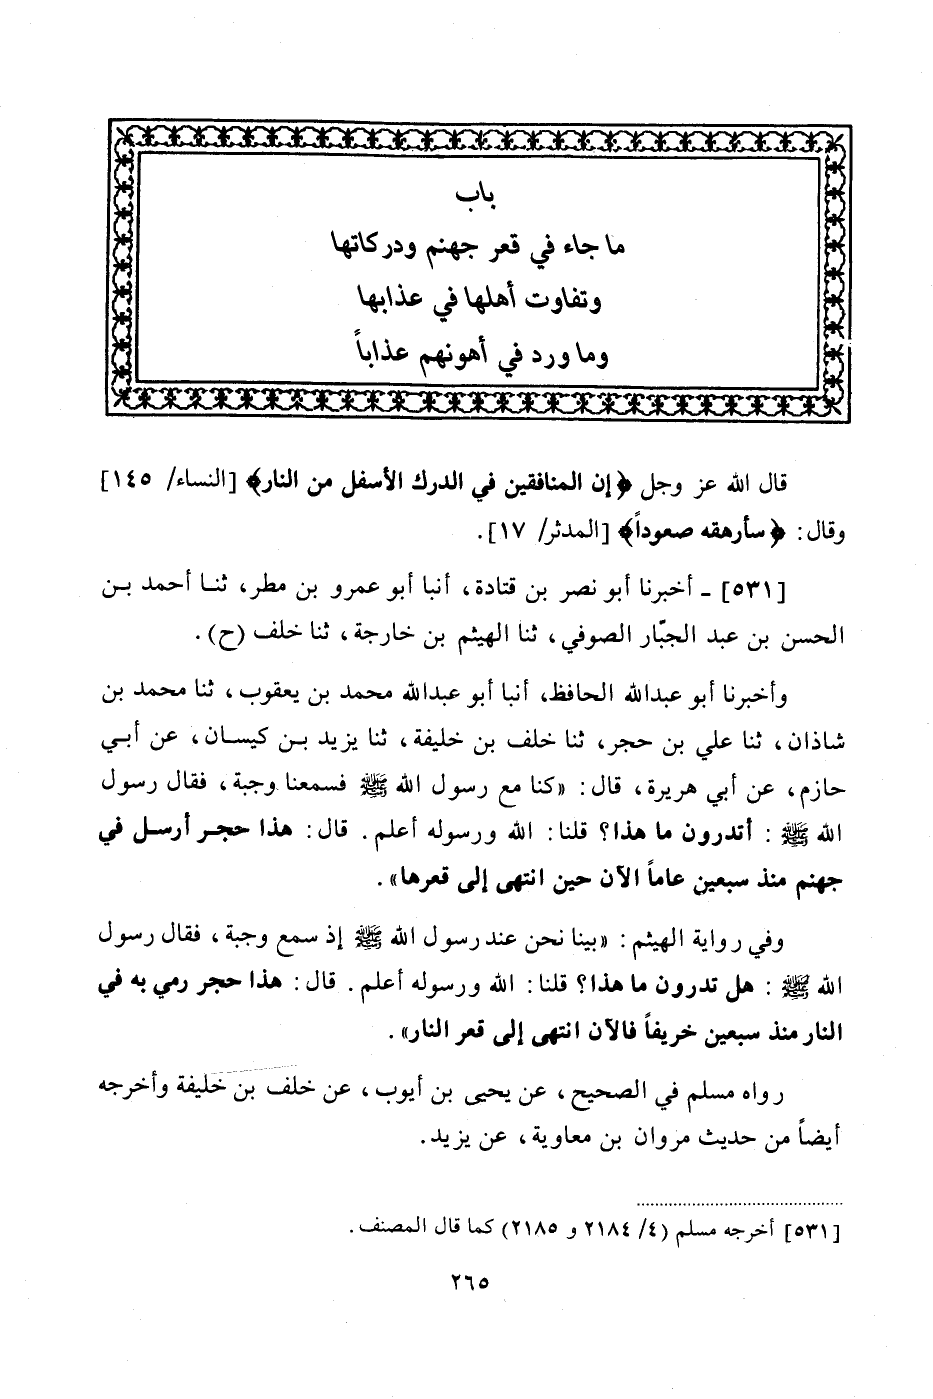 باب
ما جاء في قعر جهنم ودركاتها
وتفاوت أهلها في عذابها
وما ورد في أهونهم عذاباً
قال الله عز وجل ﴿إن المنافقين في الدرك الأسفل من النار﴾ [النساء/ ١٤٥]
وقال: ﴿سأرهقه صعوداً﴾ [المدثر/ ١٧].
[٥٣١] ـ أخبرنا أبو نصر بن قتادة، أنبا أبو عمرو بن مطر، ثنا أحمد بن
الحسن بن عبد الجبّار الصوفي، ثنا الهيثم بن خارجة، ثنا خلف (ح).
وأخبرنا أبو عبدالله الحافظ، أنبا أبو عبدالله محمد بن يعقوب، ثنا محمد بن
شاذان، ثنا علي بن حجر، ثنا خلف بن خليفة، ثنا يزيد بن كيسان، عن أبي
حازم، عن أبي هريرة، قال: «كنا مع رسول الله ﷺ فسمعنا وجبة، فقال رسول
الله ﷺ: أتدرون ما هذا؟ قلنا: الله ورسوله أعلم. قال: هذا حجر أرسل في
جهنم منذ سبعين عاماً الآن حين انتهى إلى قعرها».
وفي رواية الهيثم: «بينا نحن عند رسول الله ﷺ إذ سمع وجبة، فقال رسول
الله ﷺ: هل تدرون ما هذا؟ قلنا: الله ورسوله أعلم. قال: هذا حجر رمي به في
النار منذ سبعين خريفاً فالآن انتهى إلى قعر النار».
رواه مسلم في الصحيح، عن يحيى بن أيوب، عن خلف بن خليفة وأخرجه
أيضاً من حديث مروان بن معاوية، عن يزيد.
[٥٣١] أخرجه مسلم (٤/ ٢١٨٤ و ٢١٨٥) كما قال المصنف.
٢٦٥